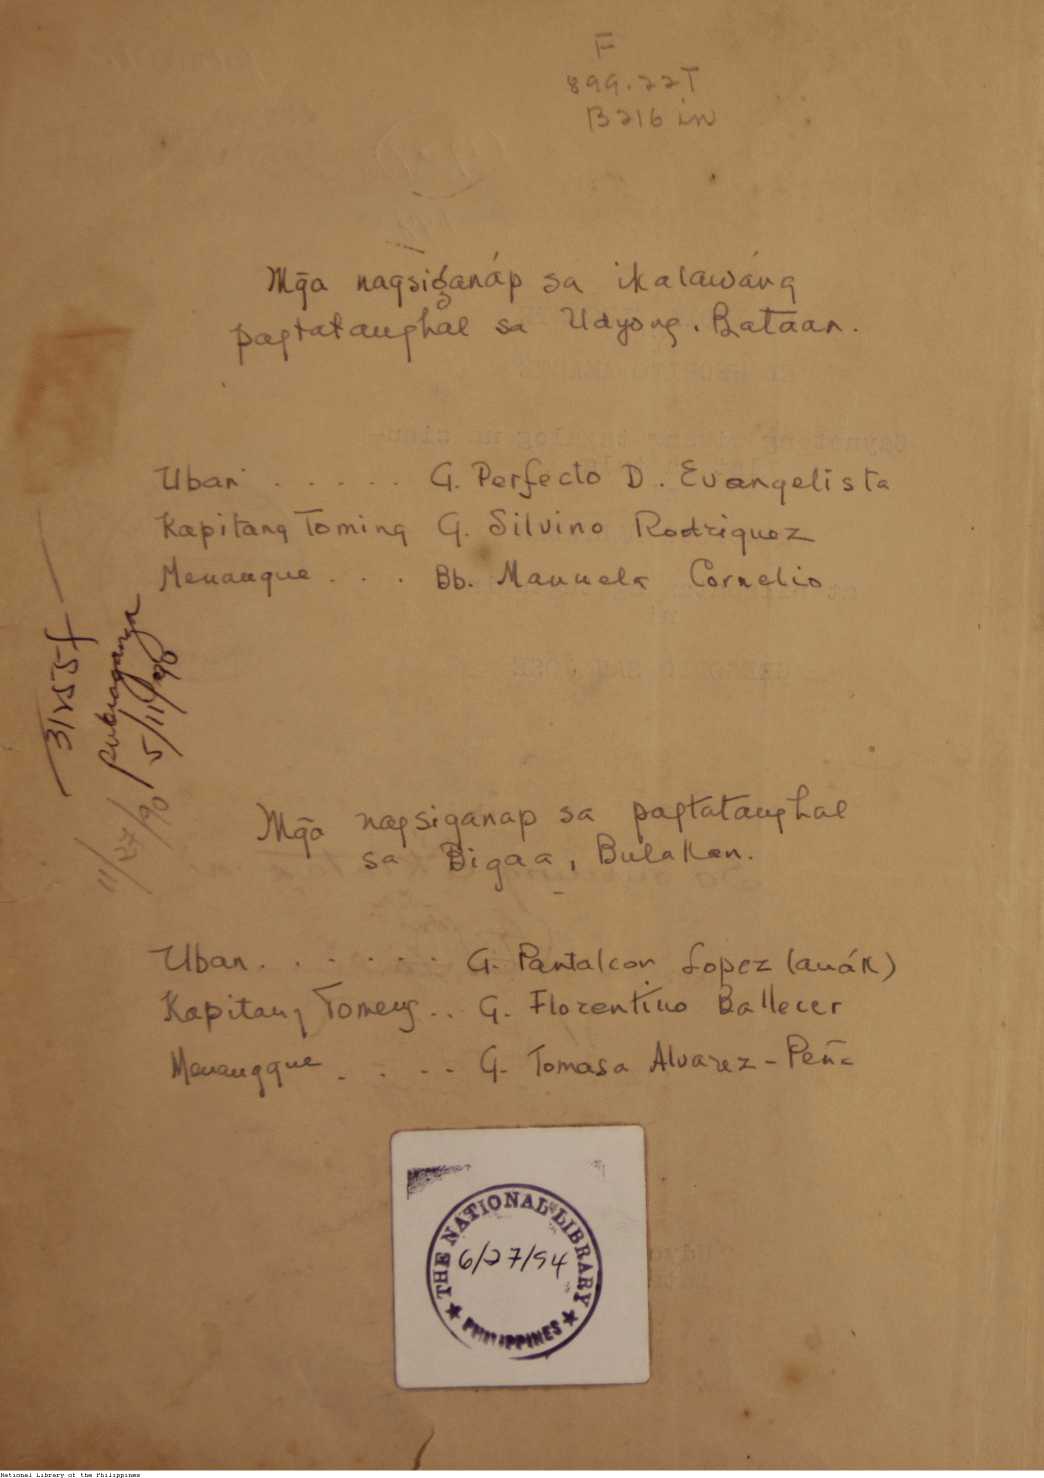 F
899.22T
B216 in
Mg̃a nagsiganáp sa ikalawáng
pagtatanghal sa Udyong, Bataan.
Uban . . . . . G. Perfecto D. Evangelista
Kapitang Toming G. Silvino Rodriguez
Menangue . . . Bb. Manuela Cornelio
31255f
5/11/90
11/27/90
Mg̃a nagsiganap sa pagtatanghal
sa Bigaa, Bulakan.
Uban . . . . . . G. Pantaleon Lopez (anák)
Kapitang Tomeng .. G. Florentino Ballecer
Menangque . . . . G. Tomasa Alvarez-Peña
THE NATIONAL LIBRARY
6/27/94
PHILIPPINES
National Library of the Philippines